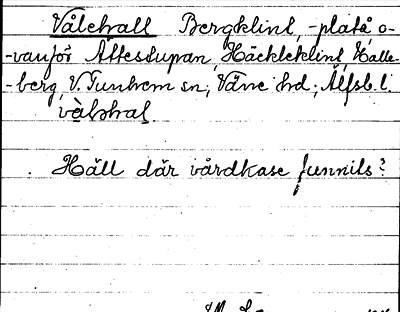 Vålehall Bergklint, -platå o-
-vanför Ättestupan, Häckleklint, Halle-
-berg, V. Tunhem sn, Väne hd; Älfsb. l.
vàlhal
Häll där vårdkase funnits?